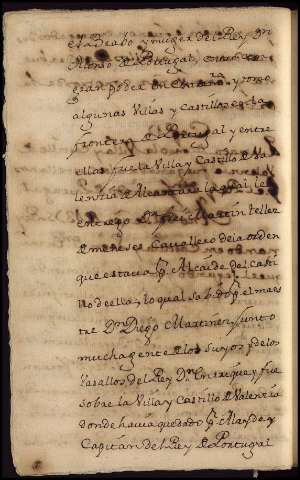 era deabo y muger del Rey Dn
Alonso de Portugal, entro con
gran poder en y tomo
algunas Villas y Castillos en la
frontera de Portugal y entre
ellas fue la Villa y Castillo de Va
lentia de Alcantara la qual le
entrego Martin tellez
de meneses Cavallero dela orden
que estava Alcaide del Casti
llo de ella, lo qual sabido el maes
tre Dn Diego Martinez, junto
mucha gente de los suyos y de los
Vasallos del Rey Dn Enrrique y fue
sobre la Villa y Castillo de Valentia
donde havia quedado Alcayde y
Capitan del Rey de Portugal